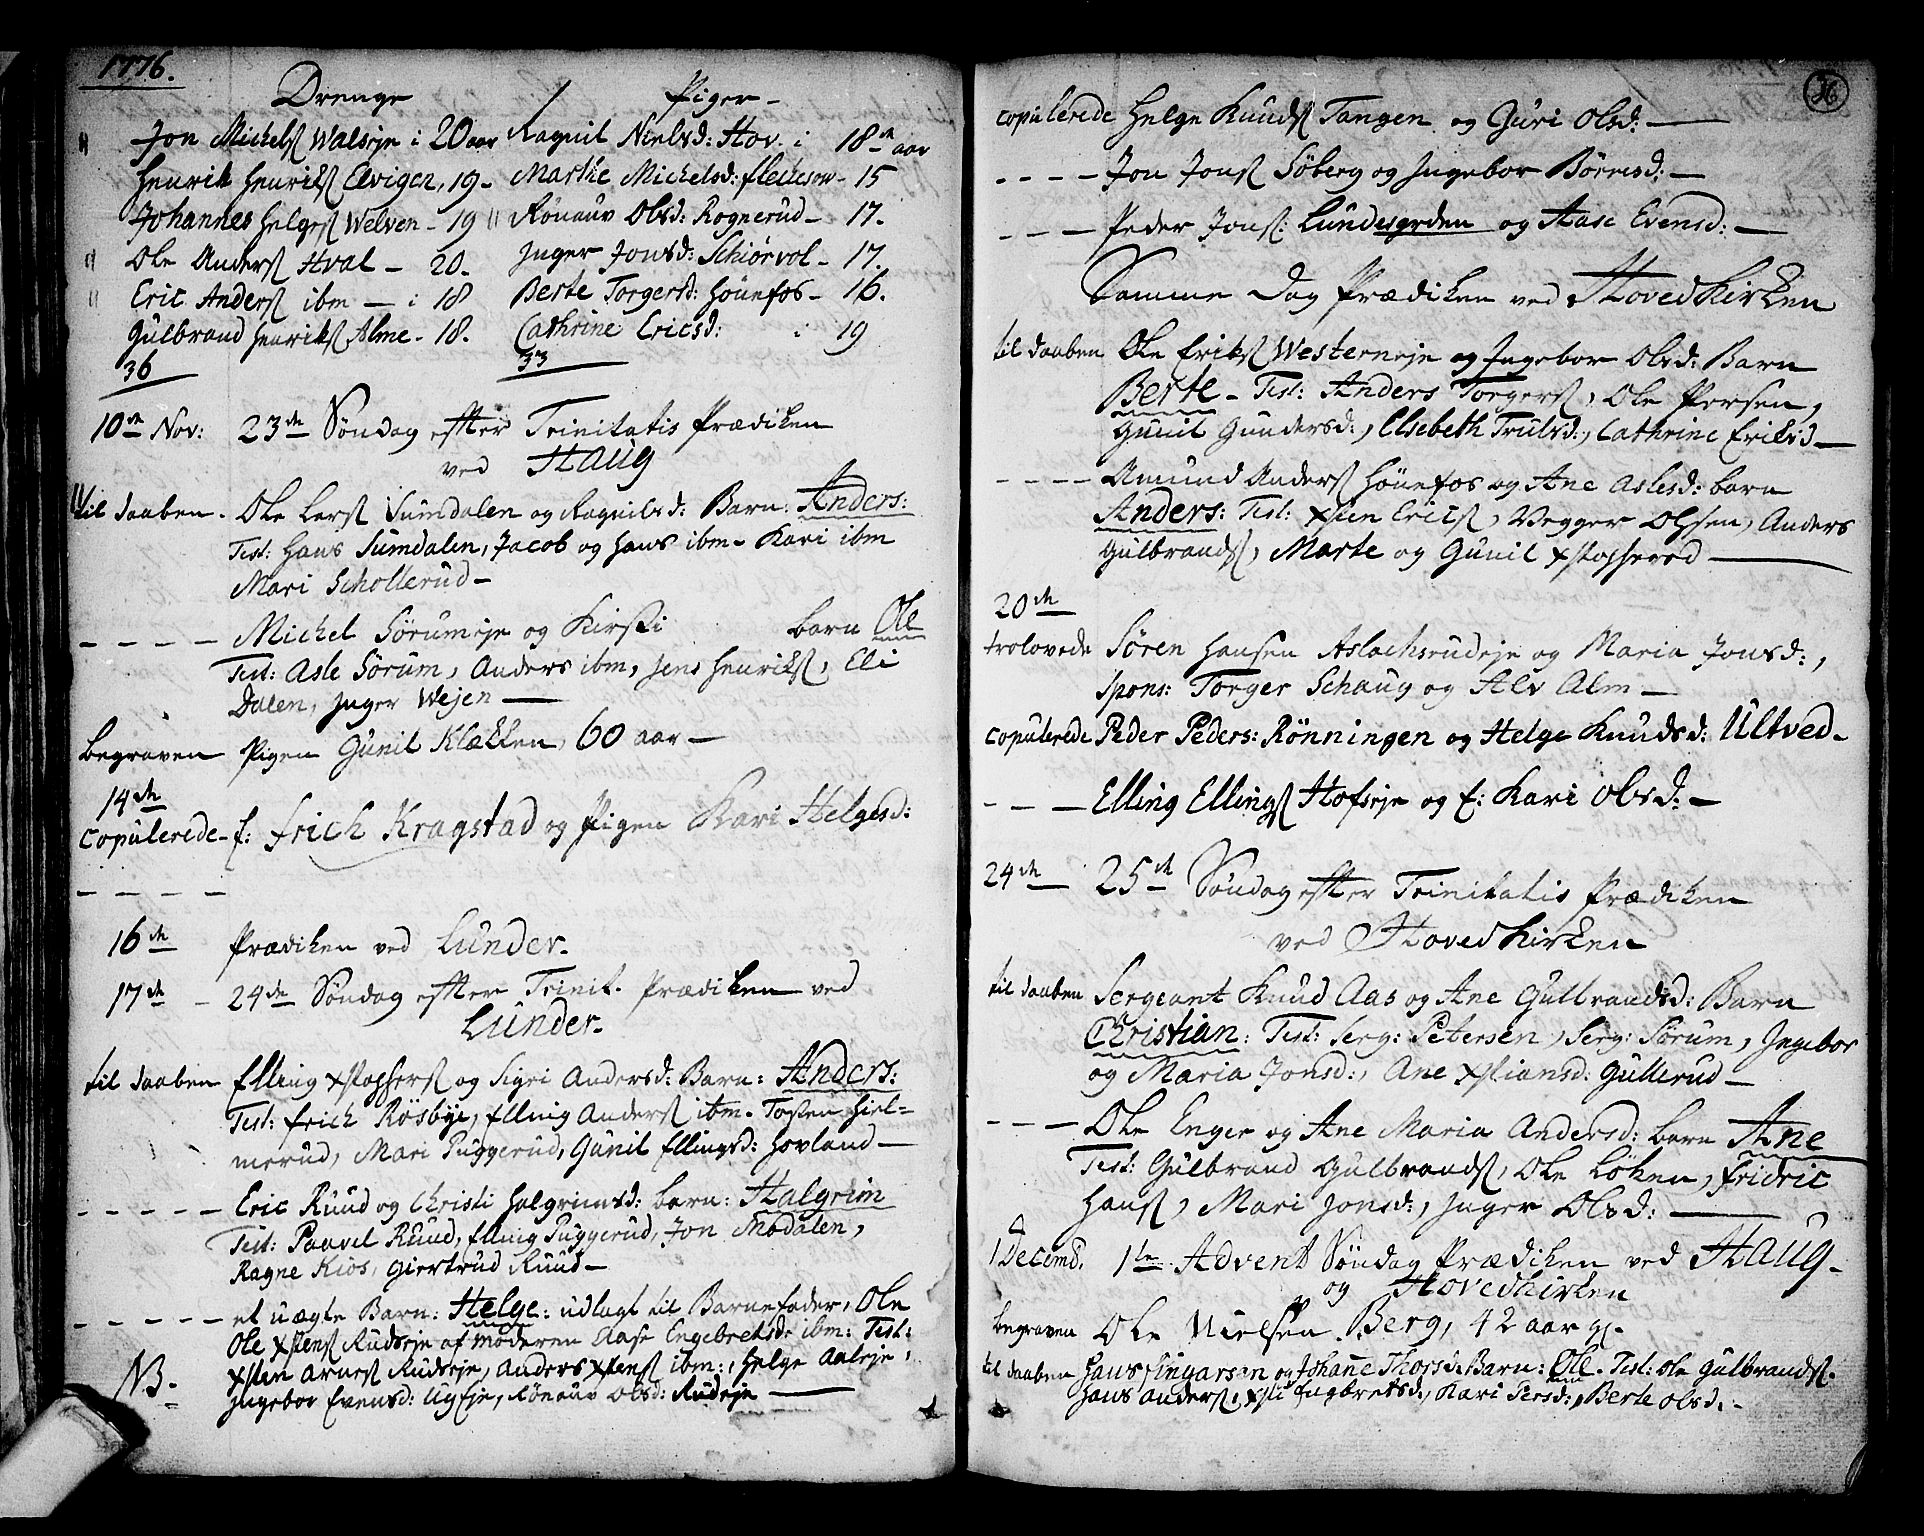 1776.
Drenge
Jon Michels Walseje i 20 aar
Henrik Henriks Elvigen, 19-
Johannes Helges Welven - 19
Ole Anders Hval - 20.
Eric Anders ibm - i 18
Gulbrand Henriks Alme - 18.
36
Piger -
Ragnil Nielsd: Hov. i 18 aar
Marthe Michelsd: - 15
Rönauv Olsd: Rognerud - 17.
Inger Jonsd: Schiørvol - 17.
Berte Torgersd: Hönefos - 16.
Cathrine Ericsd: i 19
33
10de Nov: 23de Søndag efter Trinitatis Prædiken
ved Haug
til daaben. Ole Lars Sumdalen og Ragnilsd: Barn: Anders:
Test: Hans Sumdalen, Jacob og Hans ibm - Kari ibm
Mari Schollerud -
- - - - Michel Sörumeje og Kirsti barn Ole
Test: Asle Sörum, Anders ibm, Jens Henriks, Eli
Dalen, Inger Wejen -
begraven Pigen Gunil Klækken, 60 aar -
14de
copulerede - E: Erich Kragstad og Pigen Kari Helgesd:
- - - -
16de Prædiken ved Lunder.
17de - 24de Søndag efter Trinit. Prædiken ved
Lunder -
til daaben Elling Xstophers og Sigri Andersd: Barn: Anders:
Test: Erich Rösbye, Elling Anders ibm - Tosten Hiel=
merud, Mari Puggerud, Gunil Ellingsd: Hovland -
- - - - - Eric Ruud og Christi Halgrimsd: barn: Halgrim
Test: Paavel Ruud, Elling Puggerud, Jon Modalen,
Ragne Kios, Giertrud Ruud -
- - - - - et uægte Barn: Helge: udlagt til Barnefader, Ole
Ole Xstens Rudseje af moderen Aase Engebretsd: ibm: Test:
Xsten Arnes Rudseje, Anders Xstens ibm:, Helge Aaleje,
NB - Ingebor Evensd:, Rönauv Olsd: Rudeje -
26
copulerede Helge Knuds Tangen og Guri Olsd: -
- - - - Jon Jons Söberg og Ingebor Börresd: -
- - - Peder Jons: Lundesgrden og Aase Evensd: -
Samme Dag Prædiken ved Hovedkirken
til daaben Ole Eriks Westerneje og Ingebor Olsd: Barn
Berte - Test: Anders Torgers, Ole Persen,
Gunil Gundersd:, Elsebeth Trulsd:, Cathrine Eriksd -
- - - - Amund Anders Hönefos og Ane Aslesd: barn
Anders: Test: Xsten Erics, Vegger Olsen, Anders
Gulbrands, Marte og Gunil
20de
trolovede Sören Hansen Aslachsrudeje og Maria Jonsd:,
Spons: Torger Schaug og Alv Alm -
copulerede Peder Peders: Rönningen og Helge Knudsd: Ultved -
- - - Elling Ellings Hofseje og E: Kari Olsd: -
24de 25de Søndag efter Trinitatis Prædiken
ved Hovedkirken
til daaben Sergeant Knud Aas og Ane Gulbrandsd: Barn
Christian: Test: Serg: Petersen, Serg: Sörum, Ingebor
og Maria Jonsd:, Ane Xstiansd: Gullerud -
- - - Ole Enger og Ane Maria Andersd: barn Ane
Test: Gulbrand Gulbrands, Ole Löken, Fridric
Hans, Mari Jonsd:, Inger Olsd: -
1 Decemb. 1te Advent Søndag Prædiken ved Haug -
og Hovedkirken
begraven Ole Nielsen Berg, 42 aar gl.
til daaben Hans Eingarsen og Johane Thorsd: Barn: Ole - Test: Ole Gulbrands.
Hans Anders, Xsti Engbretsd:, Kari Iversd:, Berte Olsd. -